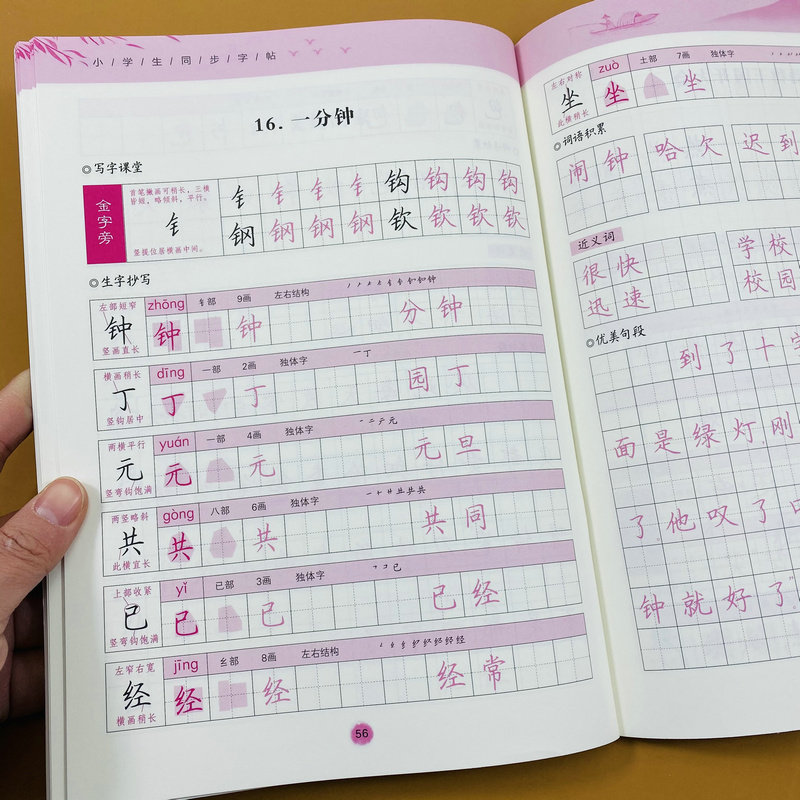 小学生同步字帖
16.一分钟
◎写字课堂
金字旁
首笔撇画可稍长，三横皆短，略倾斜，平行。
钅
竖提位居横画中间。
钅 钅 钅 钅 钩 钩 钩 钩
钢 钢 钢 钢 钦 钦 钦 钦
◎生字抄写
左部短窄 zhōng 钅部 9画 左右结构
钟 钟 钟 分钟
竖画直长
横画稍长 dīng 一部 2画 独体字
丁 丁 丁 园丁
竖钩居中
两横平行 yuán 一部 4画 独体字
元 元 元 元旦
竖弯钩饱满
两竖略斜 gòng 八部 6画 独体字
共 共 共 共同
此横宜长
上部收紧 yǐ 已部 3画 独体字
已 已 已 已经
竖弯钩饱满
左窄右宽 jīng 纟部 8画 左右结构
经 经 经 经常
横画稍长
56
左右对称 zuò 土部 7画 独体字
坐 坐 坐
此横稍长
◎词语积累
闹钟 哈欠 迟到
近义词
很快 学校
迅速 校园
◎优美句段
到了十字
面是绿灯，刚
了他叹了口
钟就好了